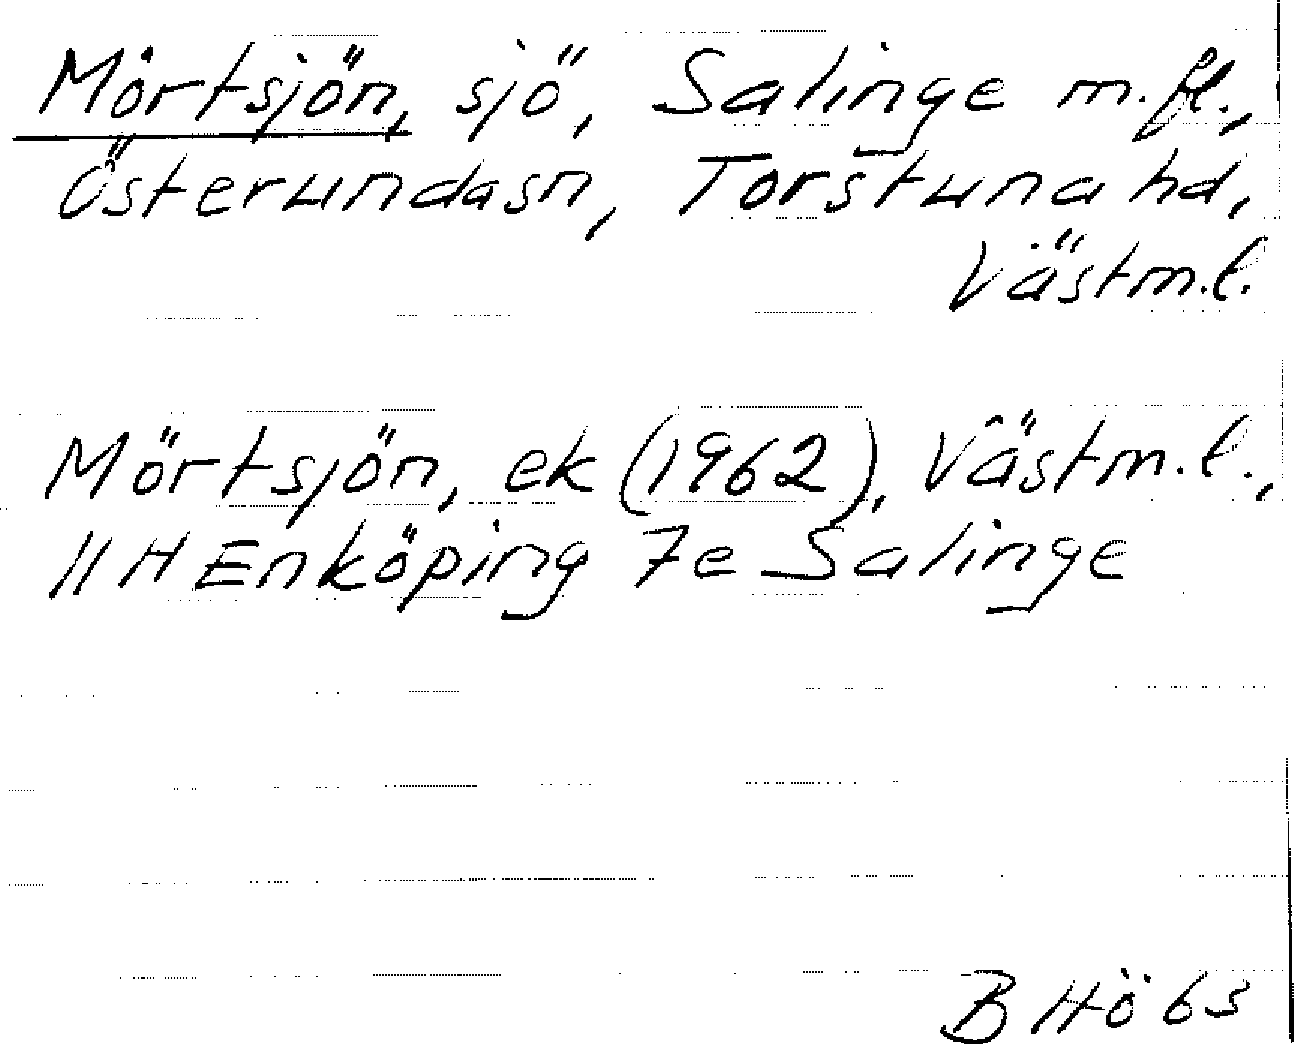 Mörtsjön, sjö, Salinge m.fl.,
Österunda sn, Torstuna hd,
Västm.l.
Mörtsjön, ek (1962), Västm.l.,
11 H Enköping 7e Salinge
B Hö 63